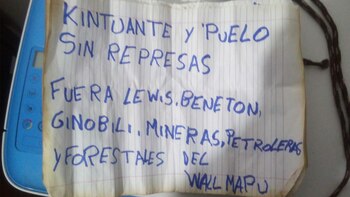 KINTUANTE Y PUELO
SIN REPRESAS
FUERA LEWIS, BENETON,
GINOBILI, MINERAS, PETROLERAS
Y FORESTALES DEL
WALLMAPU